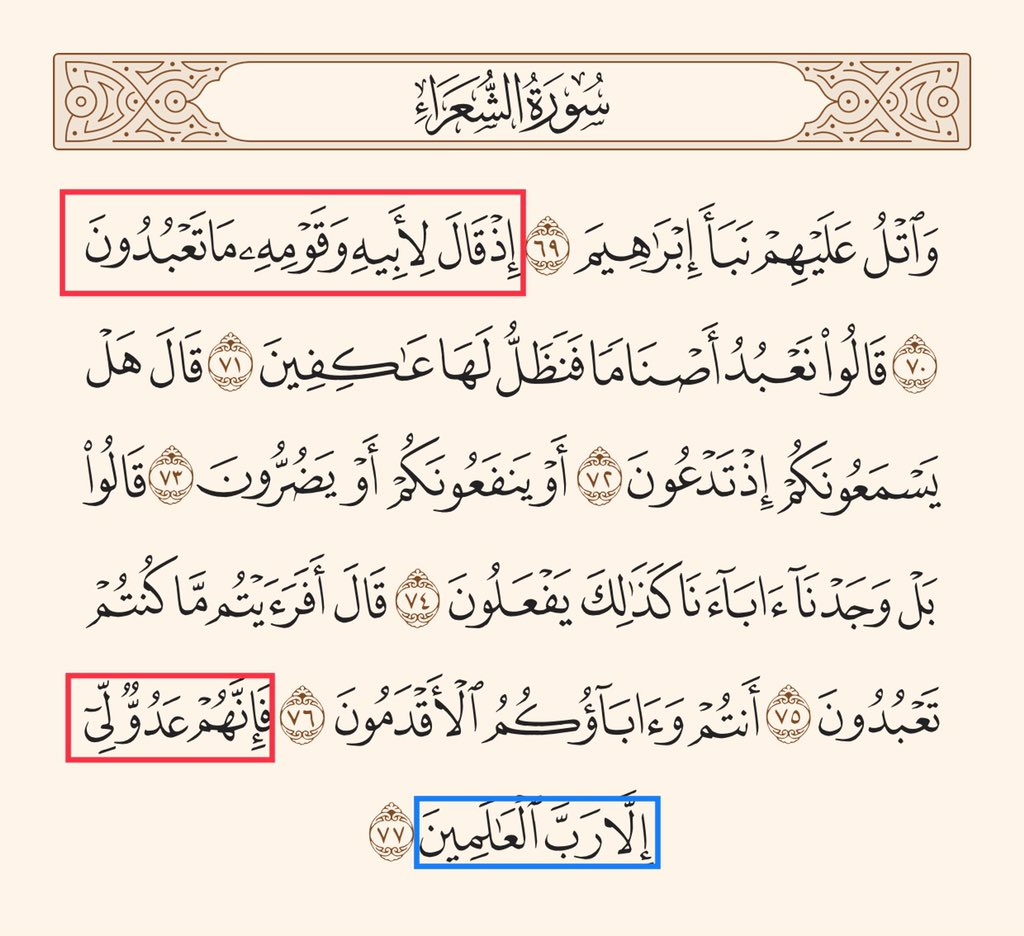 سُورَةُ الشُّعَرَاءِ
وَٱتۡلُ عَلَيۡهِمۡ نَبَأَ إِبۡرَٰهِيمَ ٦٩ إِذۡ قَالَ لِأَبِيهِ وَقَوۡمِهِۦ مَا تَعۡبُدُونَ
٧٠ قَالُواْ نَعۡبُدُ أَصۡنَامٗا فَنَظَلُّ لَهَا عَٰكِفِينَ ٧١ قَالَ هَلۡ
يَسۡمَعُونَكُمۡ إِذۡ تَدۡعُونَ ٧٢ أَوۡ يَنفَعُونَكُمۡ أَوۡ يَضُرُّونَ ٧٣ قَالُواْ
بَلۡ وَجَدۡنَآ ءَابَآءَنَا كَذَٰلِكَ يَفۡعَلُونَ ٧٤ قَالَ أَفَرَءَيۡتُم مَّا كُنتُمۡ
تَعۡبُدُونَ ٧٥ أَنتُمۡ وَءَابَآؤُكُمُ ٱلۡأَقۡدَمُونَ ٧٦ فَإِنَّهُمۡ عَدُوّٞ لِّيٓ
إِلَّا رَبَّ ٱلۡعَٰلَمِينَ ٧٧